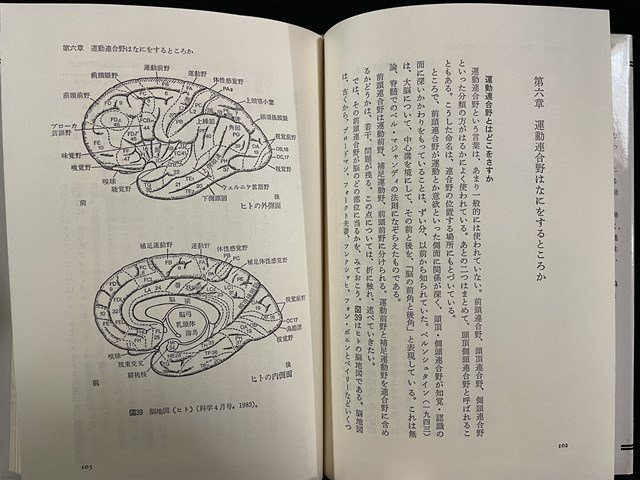 第六章　運動連合野はなにをするところか
運動連合野とはどこをさすか
運動連合野という言葉は、あまり一般的には使われていない。前頭連合野、頭頂連合野、側頭連合野
といった分類の方がはるかによく使われている。あとの二つはまとめて、頭頂側頭連合野と呼ばれるこ
ともある。こうした命名は、連合野の位置する場所にもとづいている。
ところで、前頭連合野が運動とか意欲といった側面に関係が深く、頭頂・側頭連合野が知覚・認識の
面に深いかかわりをもっていることは、ずい分、以前から知られていた。ベルンシュタイン（一九四三）
は、大脳について、中心溝を境にして、その前と後を、「脳の前角と後角」と表現している。これは無
論、脊髄でのベル・マジャンディの法則になぞらえたものである。
前頭連合野は運動前野、補足運動野、前頭前野に分けられる。運動前野と補足運動野を連合野に含め
るかどうかは、若干、問題が残る。この点については、折に触れ、述べていきたい。
では、その前頭連合野が脳のどの部位に当るかを、みておこう。図39はヒトの脳地図である。脳地図
は、古くから、ブロードマン、フォークト夫妻、フレクシッヒ、フォン・ボニンとベイリーなどいくつ
102
第六章　運動連合野はなにをするところか
運動前野
運動野
体性感覚野
前頭眼野
前頭前野
上頭頂小葉
頭頂後頭溝
ブローカ
言語野
上縁回
角回
視覚前野
視覚野
味覚野
嗅覚野
嗅球
聴覚野
ウェルニケ言語野
下側頭回
前
後
ヒトの外側面
補足運動野
運動野
体性感覚野
補足体性感覚野
脳梁
脳弓
乳頭体
海馬
視覚前野
視覚野
鳥距溝
嗅球
視束交叉
扁桃核
前
後
ヒトの内側面
図39　脳地図（ヒト）（科学4月号，1983）。
103